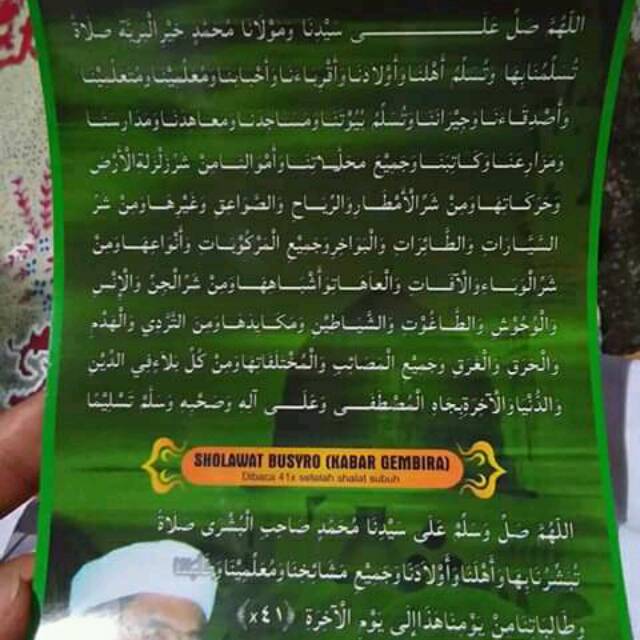 اللّٰهُمَّ صَلِّ عَلَى سَيِّدِنَا وَمَوْلَانَا مُحَمَّدٍ خَيْرِ الْبَرِيَّةِ صَلَاةً
تُسَلِّمُنَا بِهَا وَتُسَلِّمُ أَهْلَنَا وَأَوْلَادَنَا وَأَقْرِبَاءَنَا وَأَحْبَابَنَا وَمُعَلِّمِيْنَا وَمُتَعَلِّمِيْنَا
وَأَصْدِقَاءَنَا وَجِيْرَانَنَا وَتُسَلِّمُ بُيُوْتَنَا وَمَسَاجِدَنَا وَمَعَاهِدَنَا وَمَدَارِسَنَا
وَمَزَارِعَنَا وَمَكَاتِبَنَا وَجَمِيْعَ مَحَلَّاتِنَا وَأَمْوَالِنَا مِنْ شَرِّ زَلْزَلَةِ الْأَرْضِ
وَحَرَكَاتِهَا وَمِنْ شَرِّ الْأَمْطَارِ وَالرِّيَاحِ وَالصَّوَاعِقِ وَغَيْرِهَا وَمِنْ شَرِّ
السَّيَّارَاتِ وَالطَّائِرَاتِ وَالْبَوَاخِرِ وَجَمِيْعِ الْمَرْكُوْبَاتِ وَأَنْوَاعِهَا وَمِنْ
شَرِّ الْوَبَاءِ وَالْآفَاتِ وَالْعَاهَاتِ وَأَشْبَاهِهَا وَمِنْ شَرِّ الْجِنِّ وَالْإِنْسِ
وَالْوُحُوْشِ وَالطَّاغُوْتِ وَالشَّيَاطِيْنِ وَمَكَايِدِهَا وَمِنَ التَّرَدِّي وَالْهَدْمِ
وَالْحَرَقِ وَالْغَرَقِ وَجَمِيْعِ الْمَصَائِبِ وَالْمُخْتَلَفَاتِهَا وَمِنْ كُلِّ بَلَاءٍ فِي الدِّيْنِ
وَالدُّنْيَا وَالْآخِرَةِ بِجَاهِ الْمُصْطَفَى وَعَلَى آلِهِ وَصَحْبِهِ وَسَلِّمْ تَسْلِيْمًا
SHOLAWAT BUSYRO (KABAR GEMBIRA)
Dibaca 41x setelah shalat subuh
اللّٰهُمَّ صَلِّ وَسَلِّمْ عَلَى سَيِّدِنَا مُحَمَّدٍ صَاحِبِ الْبُشْرَى صَلَاةً
تُبَشِّرُنَا بِهَا وَأَهْلَنَا وَأَوْلَادَنَا وَجَمِيْعَ مَشَائِخِنَا وَمُعَلِّمِيْنَا
وَطَالِبَاتِنَا مِنْ يَوْمِنَا هَذَا إِلَى يَوْمِ الْآخِرَةِ (٤١×)